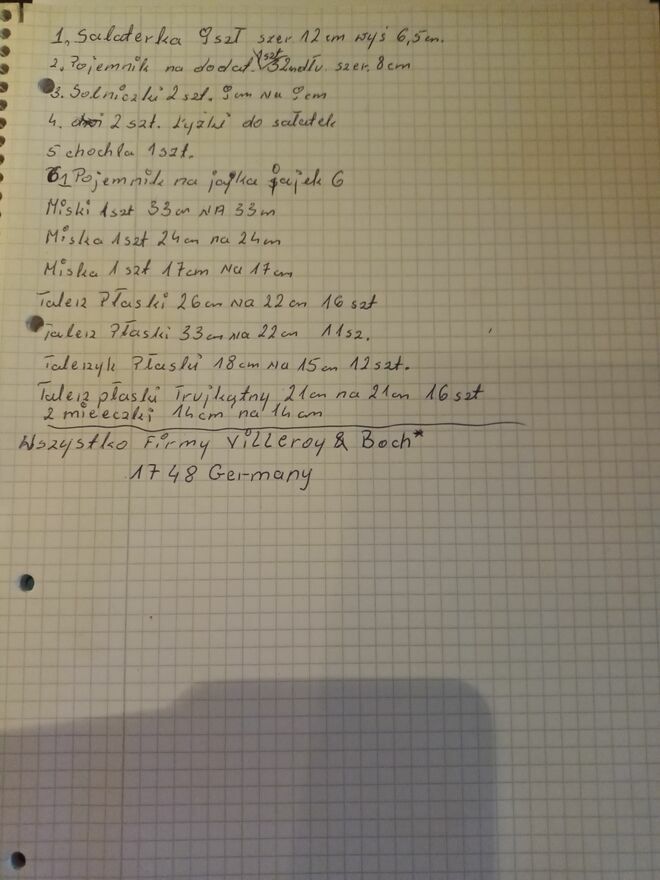 1, Salaterka 9szt szer 12cm wyś 6,5cm.
2. Pojemnik na dodat. 1szt 32cmdłu. szer. 8cm
3. Solniczki 2 szt. 9cm na 9cm
4. 2 szt. Łyżki do sałatek
5 chochla 1szt.
6 1 Pojemnik na jajka jajek 6
Miski 1szt 33cm NA 33m
Miska 1szt 24cm na 24cm
Miska 1szt 17cm Na 17cm
Talerz Płaski 26cm NA 22cm 16 szt
Talerz Płaski 33cm NA 22cm 11sz.
Talerzyk Płaski 18cm NA 15cm 12szt.
Talerz płaski Trujkątny 21cm na 21cm 16 szt
2 mieeczki 14cm na 14cm
Wszystko Firmy Villeroy & Boch*
1748 Germany